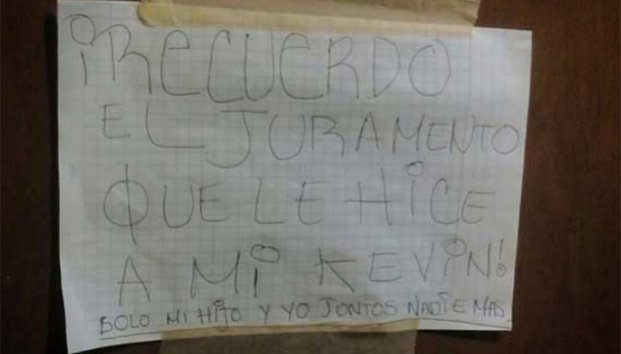 ¡RECUERDO
EL JURAMENTO
QUE LE HiCE
A Mi KEViN!
SOLO Mi HiJO Y YO JONTOS NADiE MAS